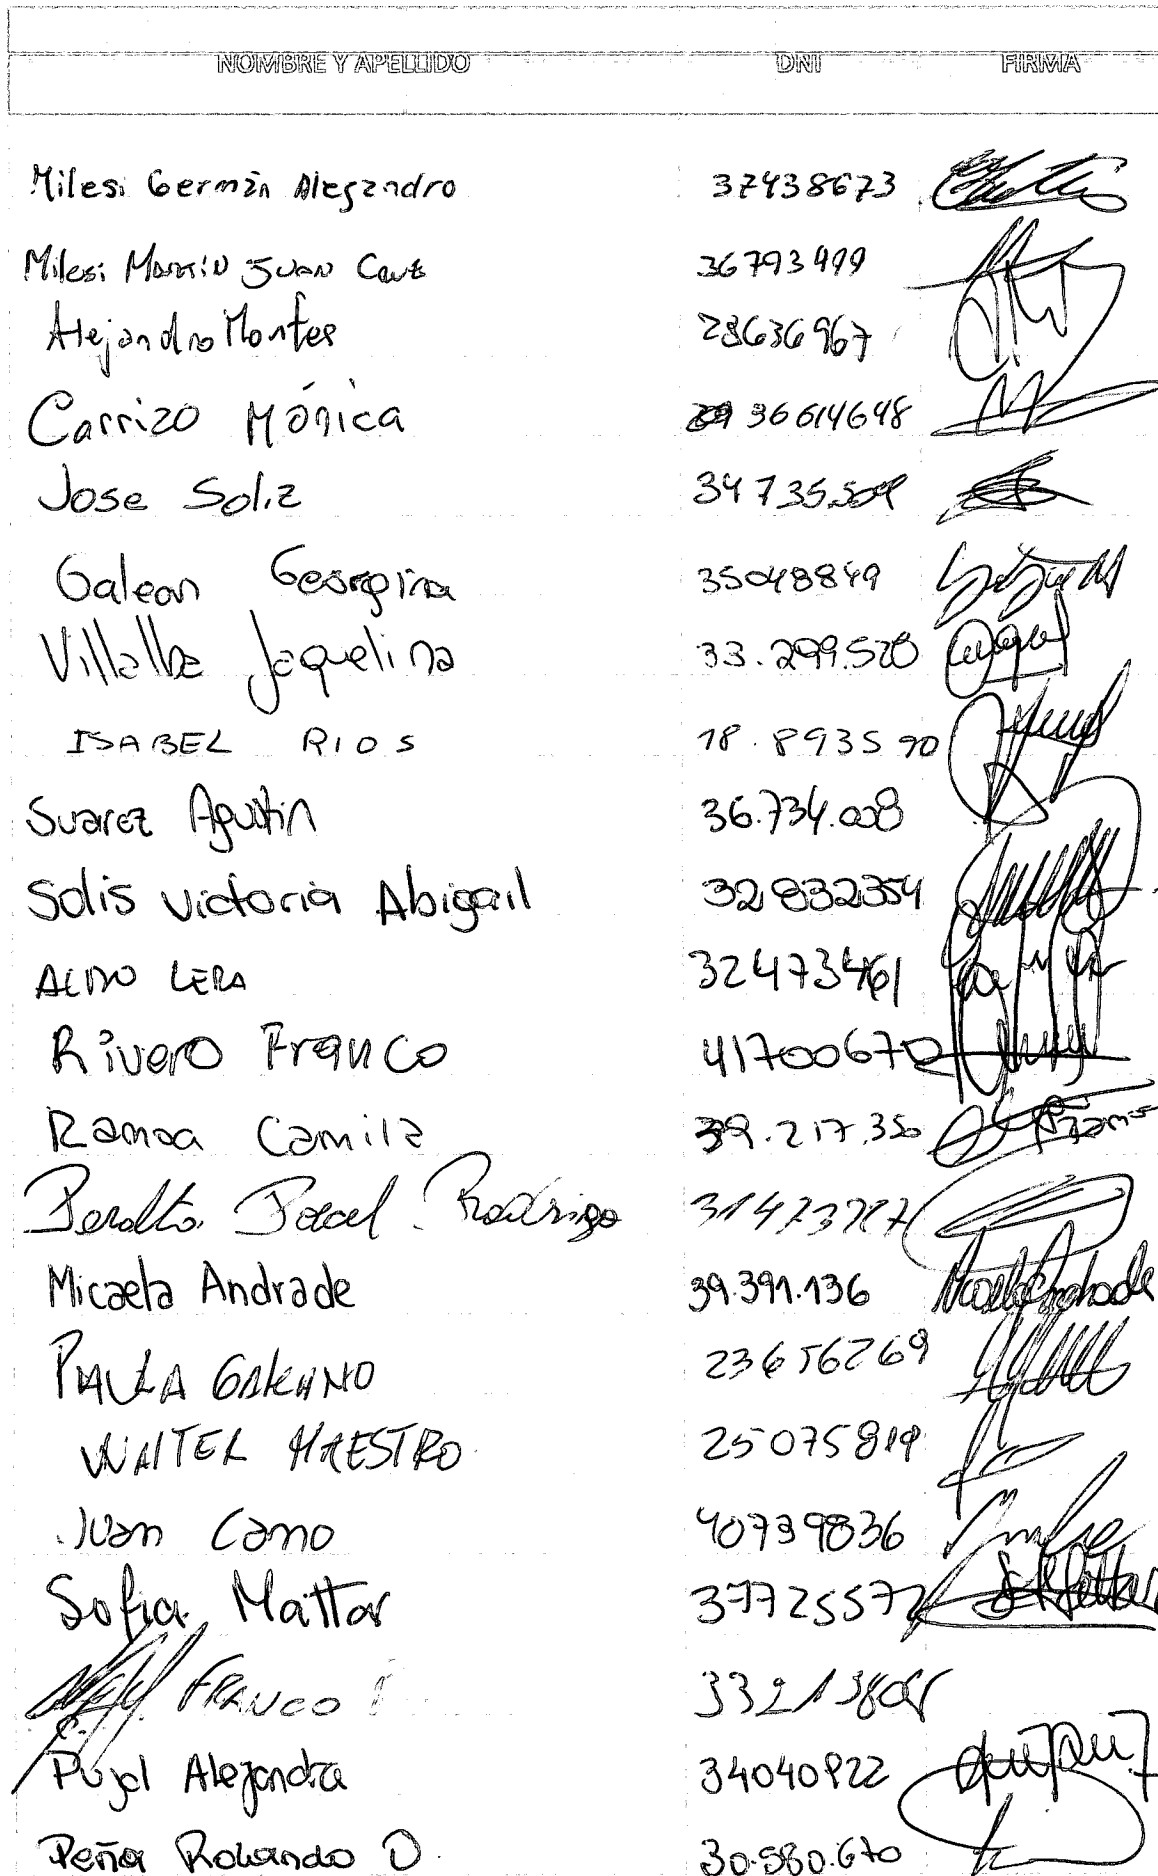 NOMBRE Y APELLIDO DNI FIRMA
Milesi Germán Alejandro 37438673
Milesi Martín Juan Cruz 36793499
Alejandro Montes 28636967
Carrizo Mónica 36614648
Jose Soliz 34735.509
Galeon Georgina 35048849
Villalba Jaquelina 33.299.520
ISABEL RIOS 18.893590
Suarez Agustin 36.734.008
Solis Victoria Abigail 32832354
ALDO LERA 32473461
Rivero Franco 41700670
Ramoa Camila 39.217.350
Peralta Rodrigo
Micaela Andrade 39.391.136
PAULA GALEANO 23656269
WALTER MAESTRO 25075819
Juan Cano 40739836
Sofia Mattar 37725572
FRANCO
Pujol Alejandra 34040922
Peña Rolando D 30.580.670